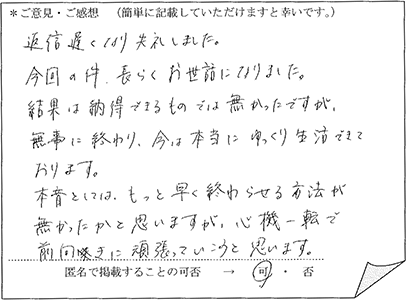 ＊ご意見・ご感想　（簡単に記載していただけますと幸いです。）
返信遅くなり失礼しました。
今回の件、長らくお世話になりました。
結果は納得できるものでは無かったですが、
無事に終わり、今は本当にゆっくり生活できて
おります。
本音としては、もっと早く終わらせる方法が
無かったかと思いますが、心機一転で
前向きに頑張っていこうと思います。
匿名で掲載することの可否　→　可　・　否